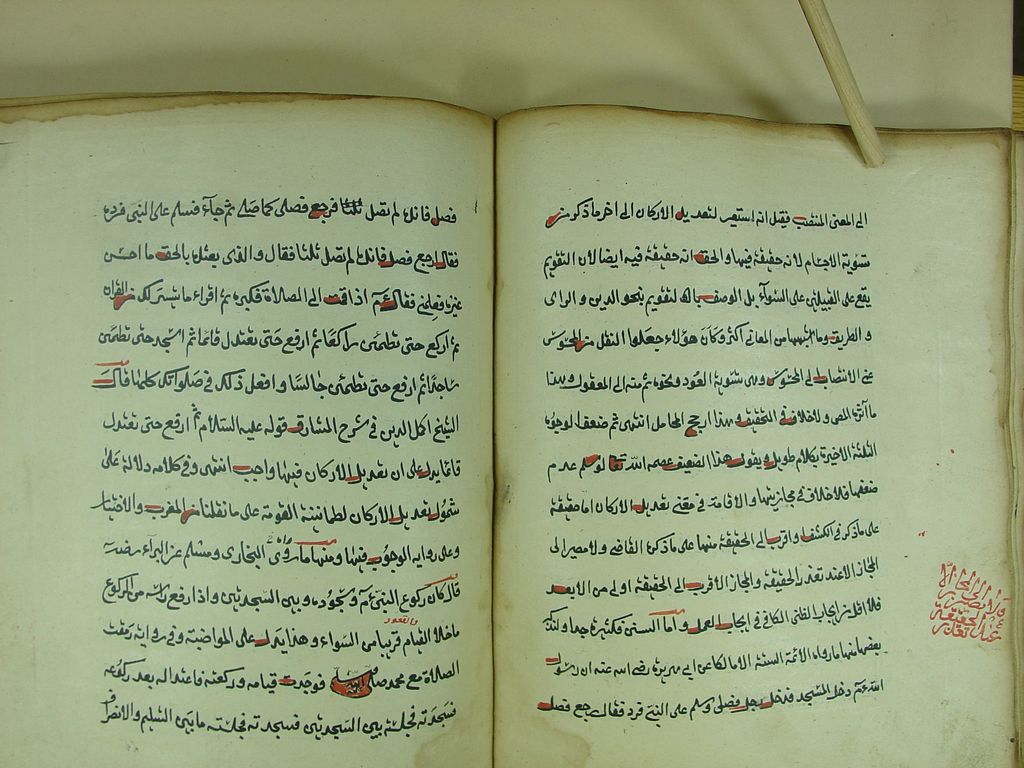 الى المعنى المنتصب فقيل انه استعير لتعديل الاركان الى اخر ما ذكر من
تسوية الاجسام لانه حقيقة فيها والحق انه حقيقة فيه ايضا لان التقويم
يقع على القبيلين على السواء بل الوصف بالتقويم بنحو الدين والراى
والطريق وما اشبهها من المعانى اكثر وكان هؤلاء جعلوا النقل من المحسوس
الى المحسوس وهى تسوية العود ونحوه ثم منه الى المعقول وهذا
ولا خلاف فى التحقيق وهذا ارجح المحامل انتهى ثم ضعف الوجوه
الثلثة الاخيرة بكلام طويل ويقول هذا الضعيف عصمه الله تعالى لو سلم عدم
ضعفها فلا خلاف فى مجازيتها والاقامة فى معنى تعديل الاركان اما حقيقة
على ما ذكر فى الكشف واقرب الى الحقيقة منها على ما ذكره القاضى ولا مصير الى
المجاز الا عند تعذر الحقيقة والمجاز الاقرب الى الحقيقة اولى من الابعد
فلا اقل من ايجاب الظنى الكافى فى ايجاب العمل واما السنن فكثيرة جدا ولنذكر
بعضها منها ما رواه الائمة الستة الا مالكا عن ابى هريرة رضى الله عنه ان رسول
الله عم دخل المسجد فدخل رجل فصلى وسلم على النبى فرد فقال ارجع فصل
ولا يصار الى المجاز الا عند تعذر الحقيقة
فصل فانك لم تصل ثلثا فرجع فصلى كما صلى ثم جاء فسلم على النبى فرده
فقال ارجع فصل فانك لم تصل ثلثا فقال والذى بعثك بالحق ما احسن
غيره فعلمنى فقال عم اذا قمت الى الصلاة فكبر ثم اقراء ما تيسر لك من القران
ثم اركع حتى تطمئن راكعا ثم ارفع حتى تعتدل قائما ثم اسجد حتى تطمئن
ساجدا ثم ارفع حتى تطمئن جالسا وافعل ذلك فى صلواتك كلها قال
الشيخ اكمل الدين فى شرح المشارق قوله عليه السلام ثم ارفع حتى تعتدل
قائما يدل على ان تعديل الاركان فيها واجب انتهى وفى كلامه دلالة على
شمول تعديل الاركان لطمانينة القومة على ما نقلنا من المغرب والاختيار
وعلى رواية الوجوب فيها ومنها ما روى البخارى ومسلم عن البراء رضه
قال كان ركوع النبى عم وسجوده وبين السجدتين واذا رفع راسه من الركوع
ما خلا القيام والقعود قريبا من السواء وهذا يدل على المواضبة وفى رواية رمقت
الصلاة مع محمد صلى الله فوجدت قيامه وركعته فاعتداله بعد ركوعه
فسجدته فجلسته بين السجدتين فسجدته فجلسته ما بين التسليم والانصرا